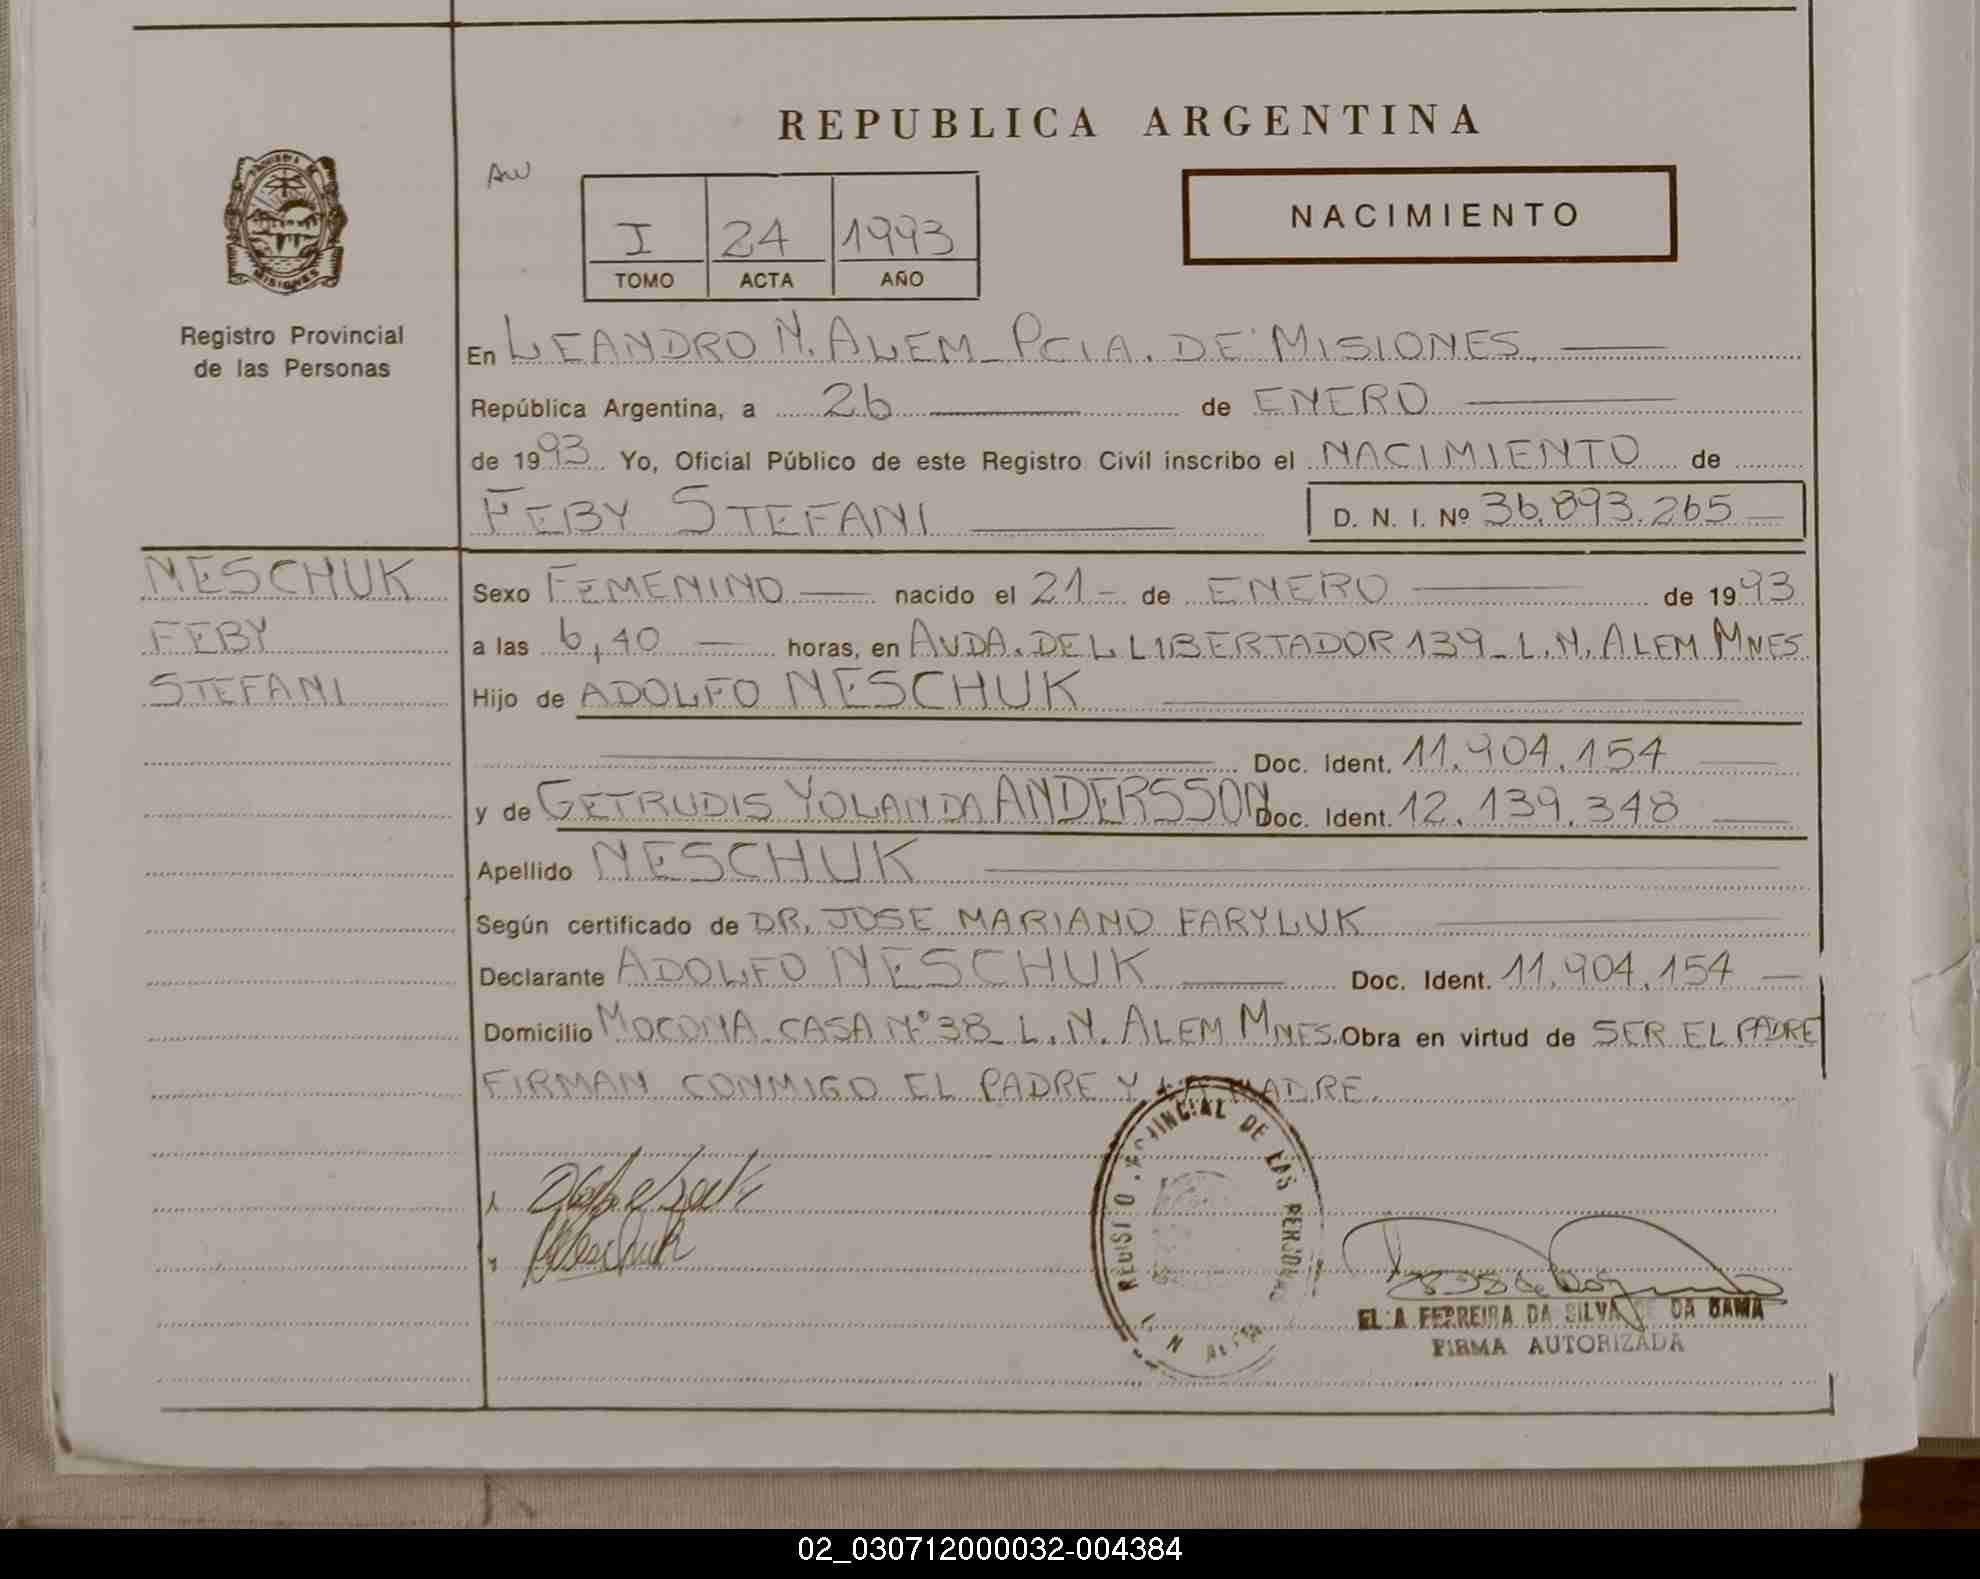 REPUBLICA ARGENTINA
AW
I 24 1993
TOMO ACTA AÑO
NACIMIENTO
MISIONES
Registro Provincial
de las Personas
En LEANDRO N. ALEM - PCIA. DE MISIONES.
República Argentina, a 26 de ENERO
de 1993 Yo, Oficial Público de este Registro Civil inscribo el NACIMIENTO de
FEBY STEFANI
D. N. I. Nº 36.893.265
NESCHUK
FEBY
STEFANI
Sexo FEMENINO nacido el 21 - de ENERO de 1993
a las 6,40 horas, en AVDA. DEL LIBERTADOR 139 - L.N. ALEM MNES.
Hijo de ADOLFO NESCHUK
Doc. Ident. 11.904.154
y de GETRUDIS YOLANDA ANDERSSON Doc. Ident. 12.139.348
Apellido NESCHUK
Según certificado de DR. JOSE MARIANO FARYLUK
Declarante ADOLFO NESCHUK Doc. Ident. 11.904.154
Domicilio MOCONA CASA Nº 38 - L.N. ALEM MNES. Obra en virtud de SER EL PADRE
FIRMAN CONMIGO EL PADRE Y LA MADRE.
Neschuk
DE LAS PERSONAS
FERREIRA DA SILVA DE DA GAMA
FIRMA AUTORIZADA
02_030712000032-004384